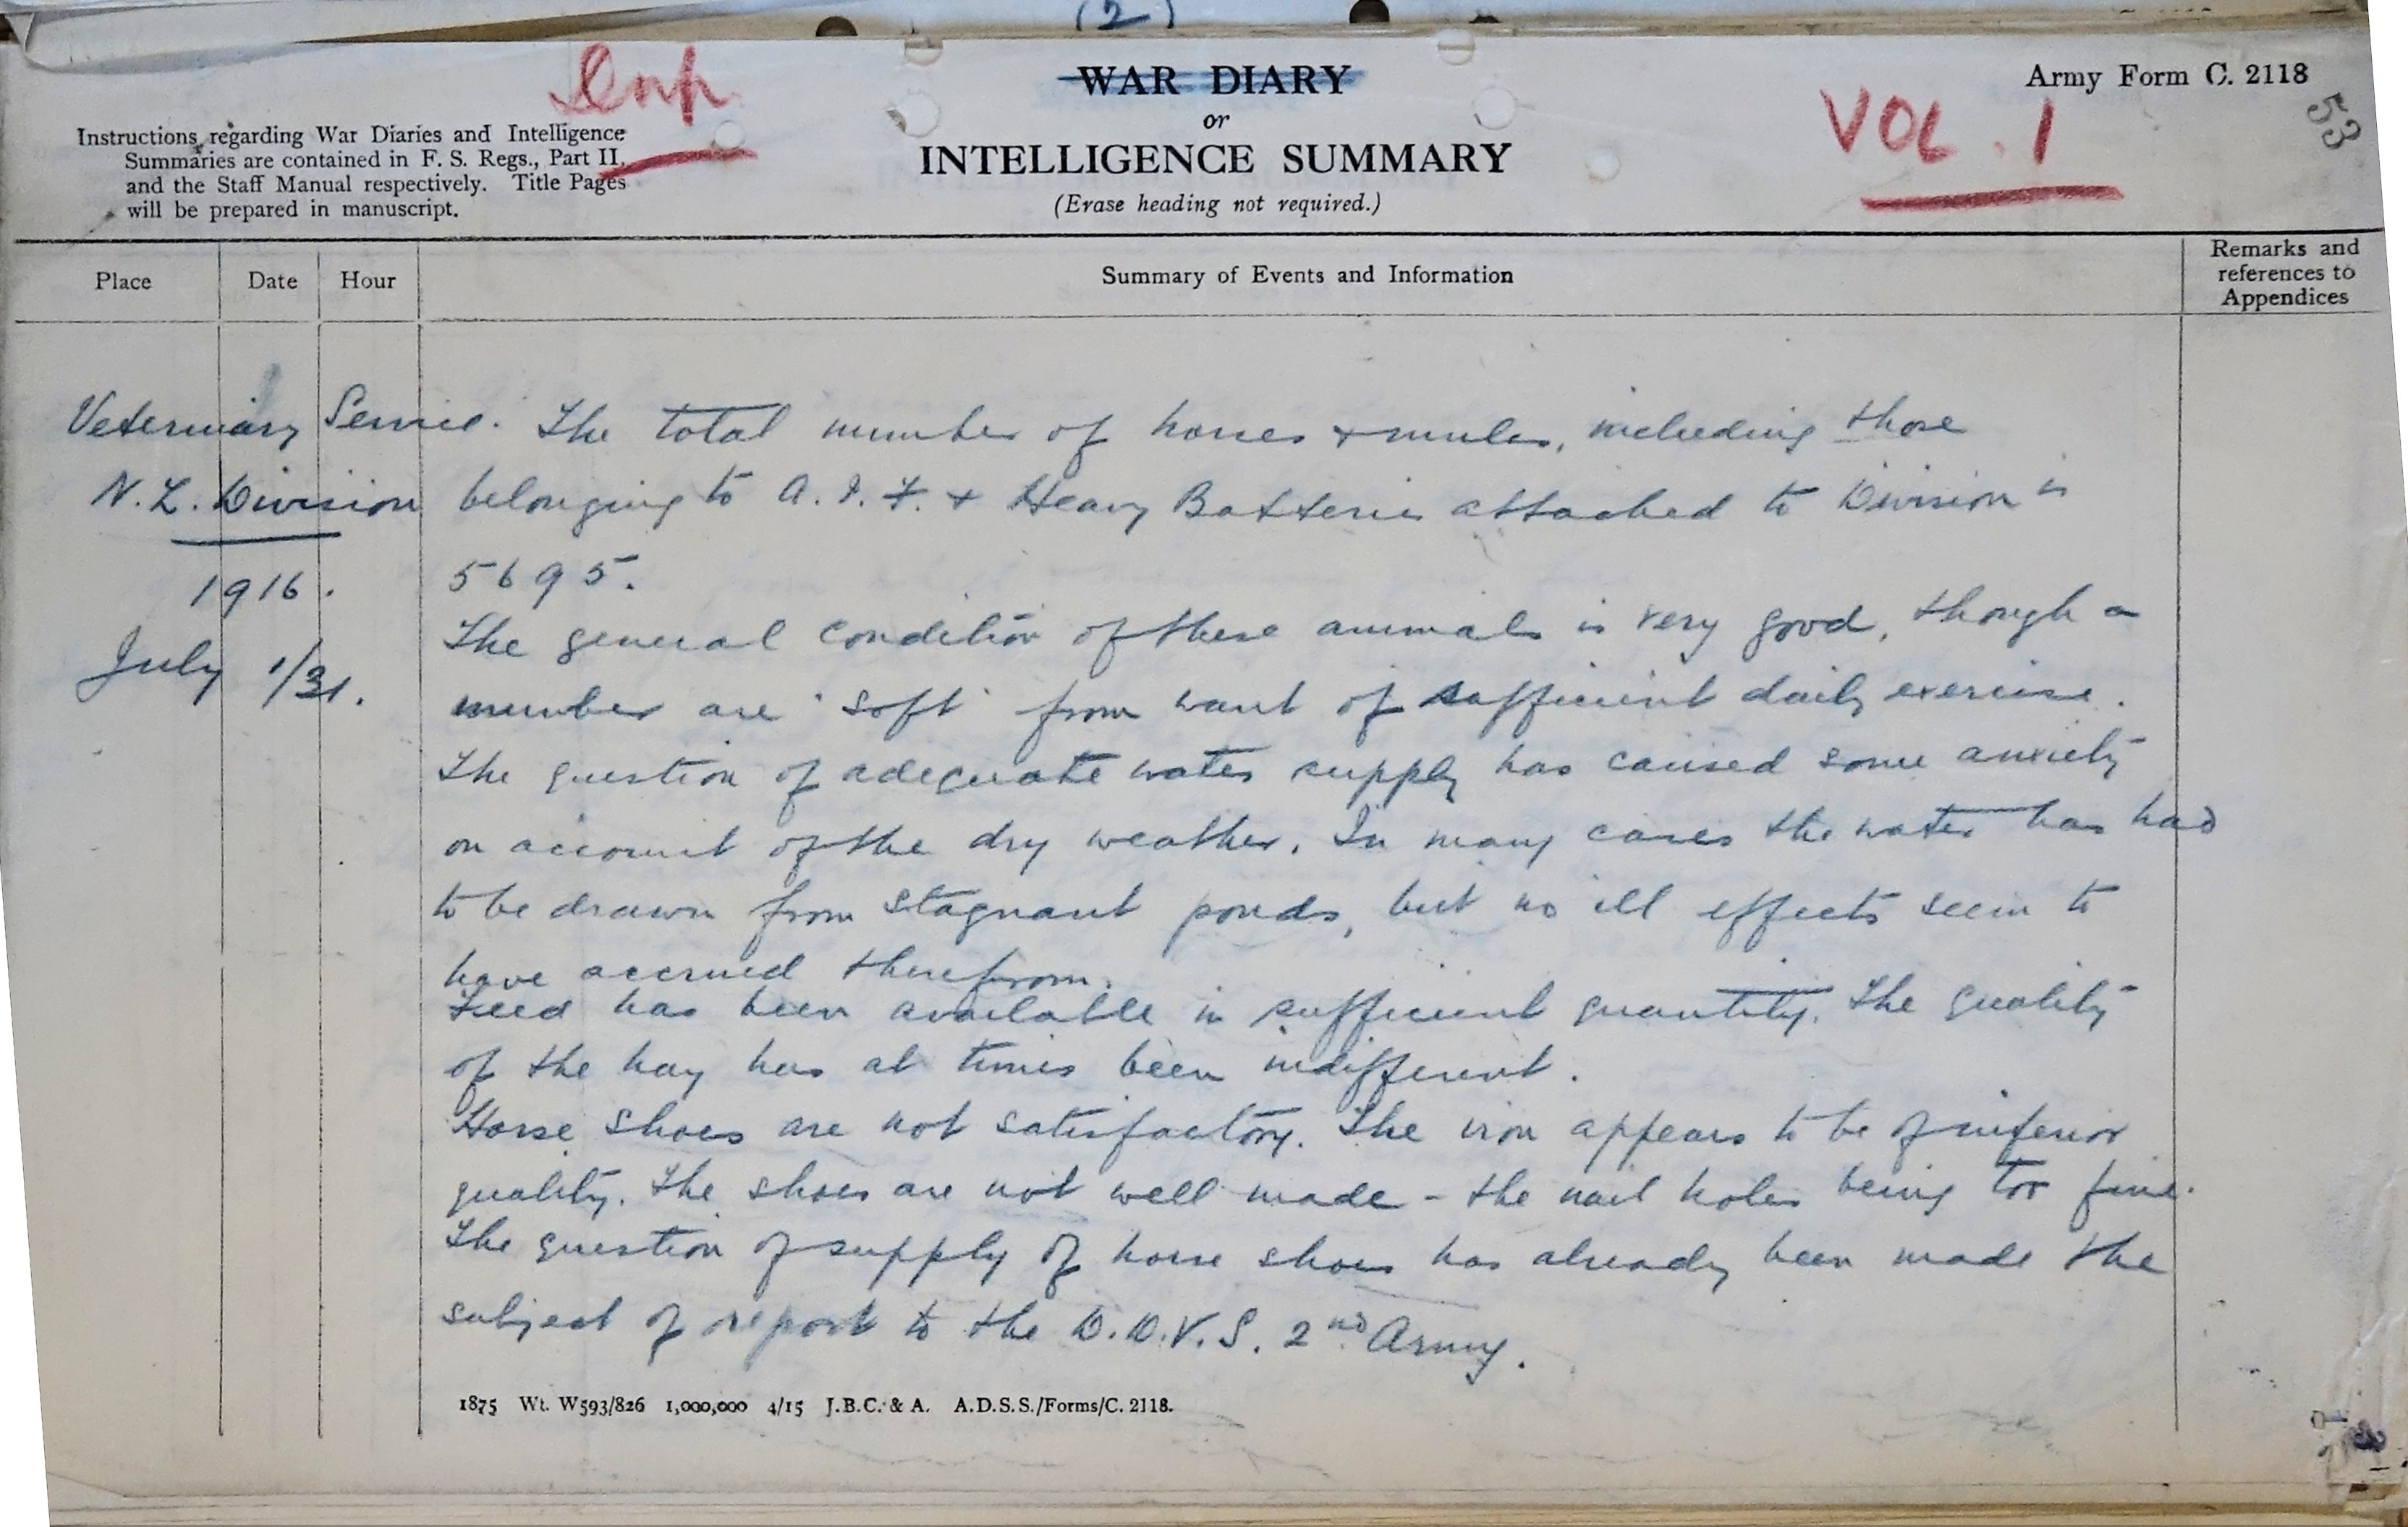 (2)
WAR DIARY
or
INTELLIGENCE SUMMARY
(Erase heading not required.)
Army Form C. 2118
VOL. 1
53
Instructions regarding War Diaries and Intelligence
Summaries are contained in F. S. Regs., Part II.
and the Staff Manual respectively. Title Pages
will be prepared in manuscript.
Place Date Hour Summary of Events and Information Remarks and
references to
Appendices
Veterinary Service.
N.Z. Division
1916.
July 1/31.
The total number of horses + mules, including those
belonging to A.I.F. + Heavy Batteries attached to Division is
5695.
The general condition of these animals is very good, though a
number are 'soft' from want of sufficient daily exercise.
The question of adequate water supply has caused some anxiety
on account of the dry weather. In many cases the water has had
to be drawn from stagnant ponds, but no ill effects seem to
have accrued therefrom.
Feed has been available in sufficient quantity. The quality
of the hay has at times been indifferent.
Horse shoes are not satisfactory. The iron appears to be of inferior
quality. The shoes are not well made - the nail holes being too fine.
The question of supply of horse shoes has already been made the
subject of report to the D.D.V.S. 2nd Army.
1875 Wt. W593/826 1,000,000 4/15 J.B.C. & A. A.D.S.S./Forms/C. 2118.